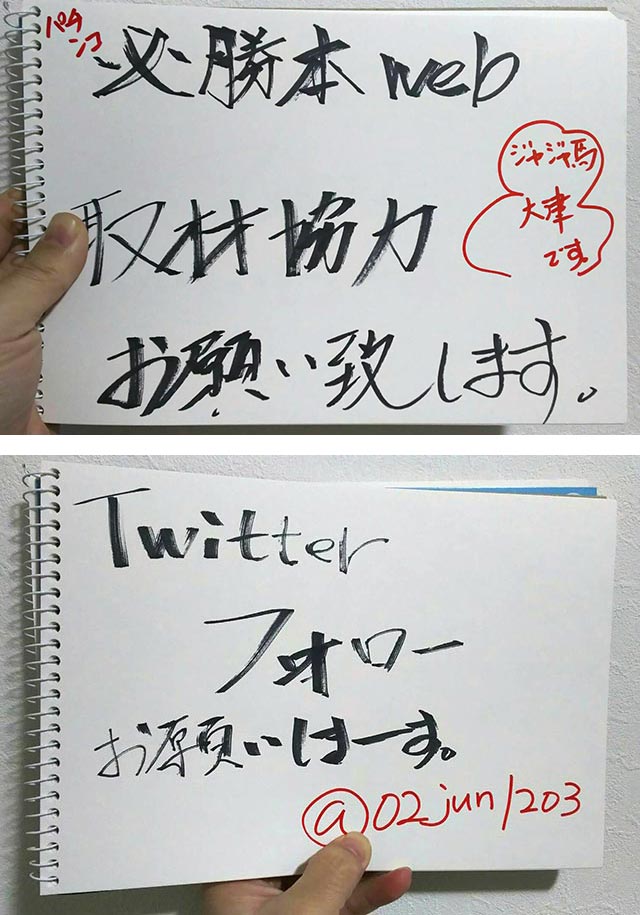 パチンコ
必勝本 web
取材協力
お願い致します。
ジャジャ馬
大津
です。
Twitter
フォロー
お願いしまーす。
@02jun1203